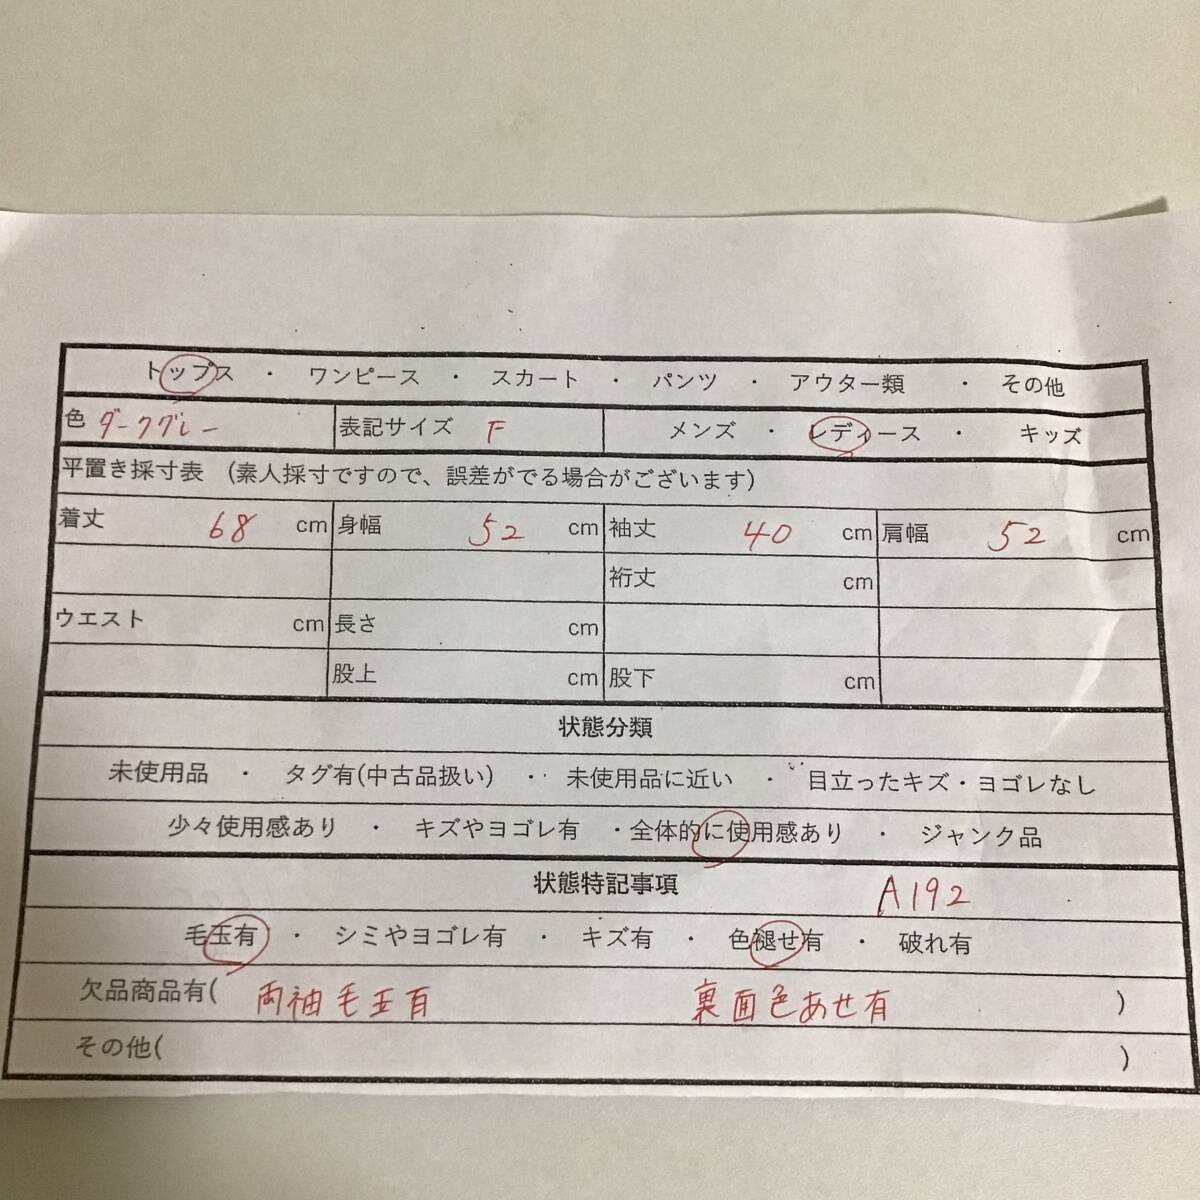 トップス ・ ワンピース ・ スカート ・ パンツ ・ アウター類 ・ その他
色 ダークグレー 表記サイズ F メンズ ・ レディース ・ キッズ
平置き採寸表 (素人採寸ですので、誤差がでる場合がございます)
着丈 68 cm 身幅 52 cm 袖丈 40 cm 肩幅 52 cm
裄丈 cm
ウエスト cm 長さ cm
股上 cm 股下 cm
状態分類
未使用品 ・ タグ有(中古品扱い) ・ 未使用品に近い ・ 目立ったキズ・ヨゴレなし
少々使用感あり ・ キズやヨゴレ有 ・全体的に使用感あり ・ ジャンク品
状態特記事項 A192
毛玉有 ・ シミやヨゴレ有 ・ キズ有 ・ 色褪せ有 ・ 破れ有
欠品商品有( 両袖毛玉有 裏面色あせ有 )
その他( )